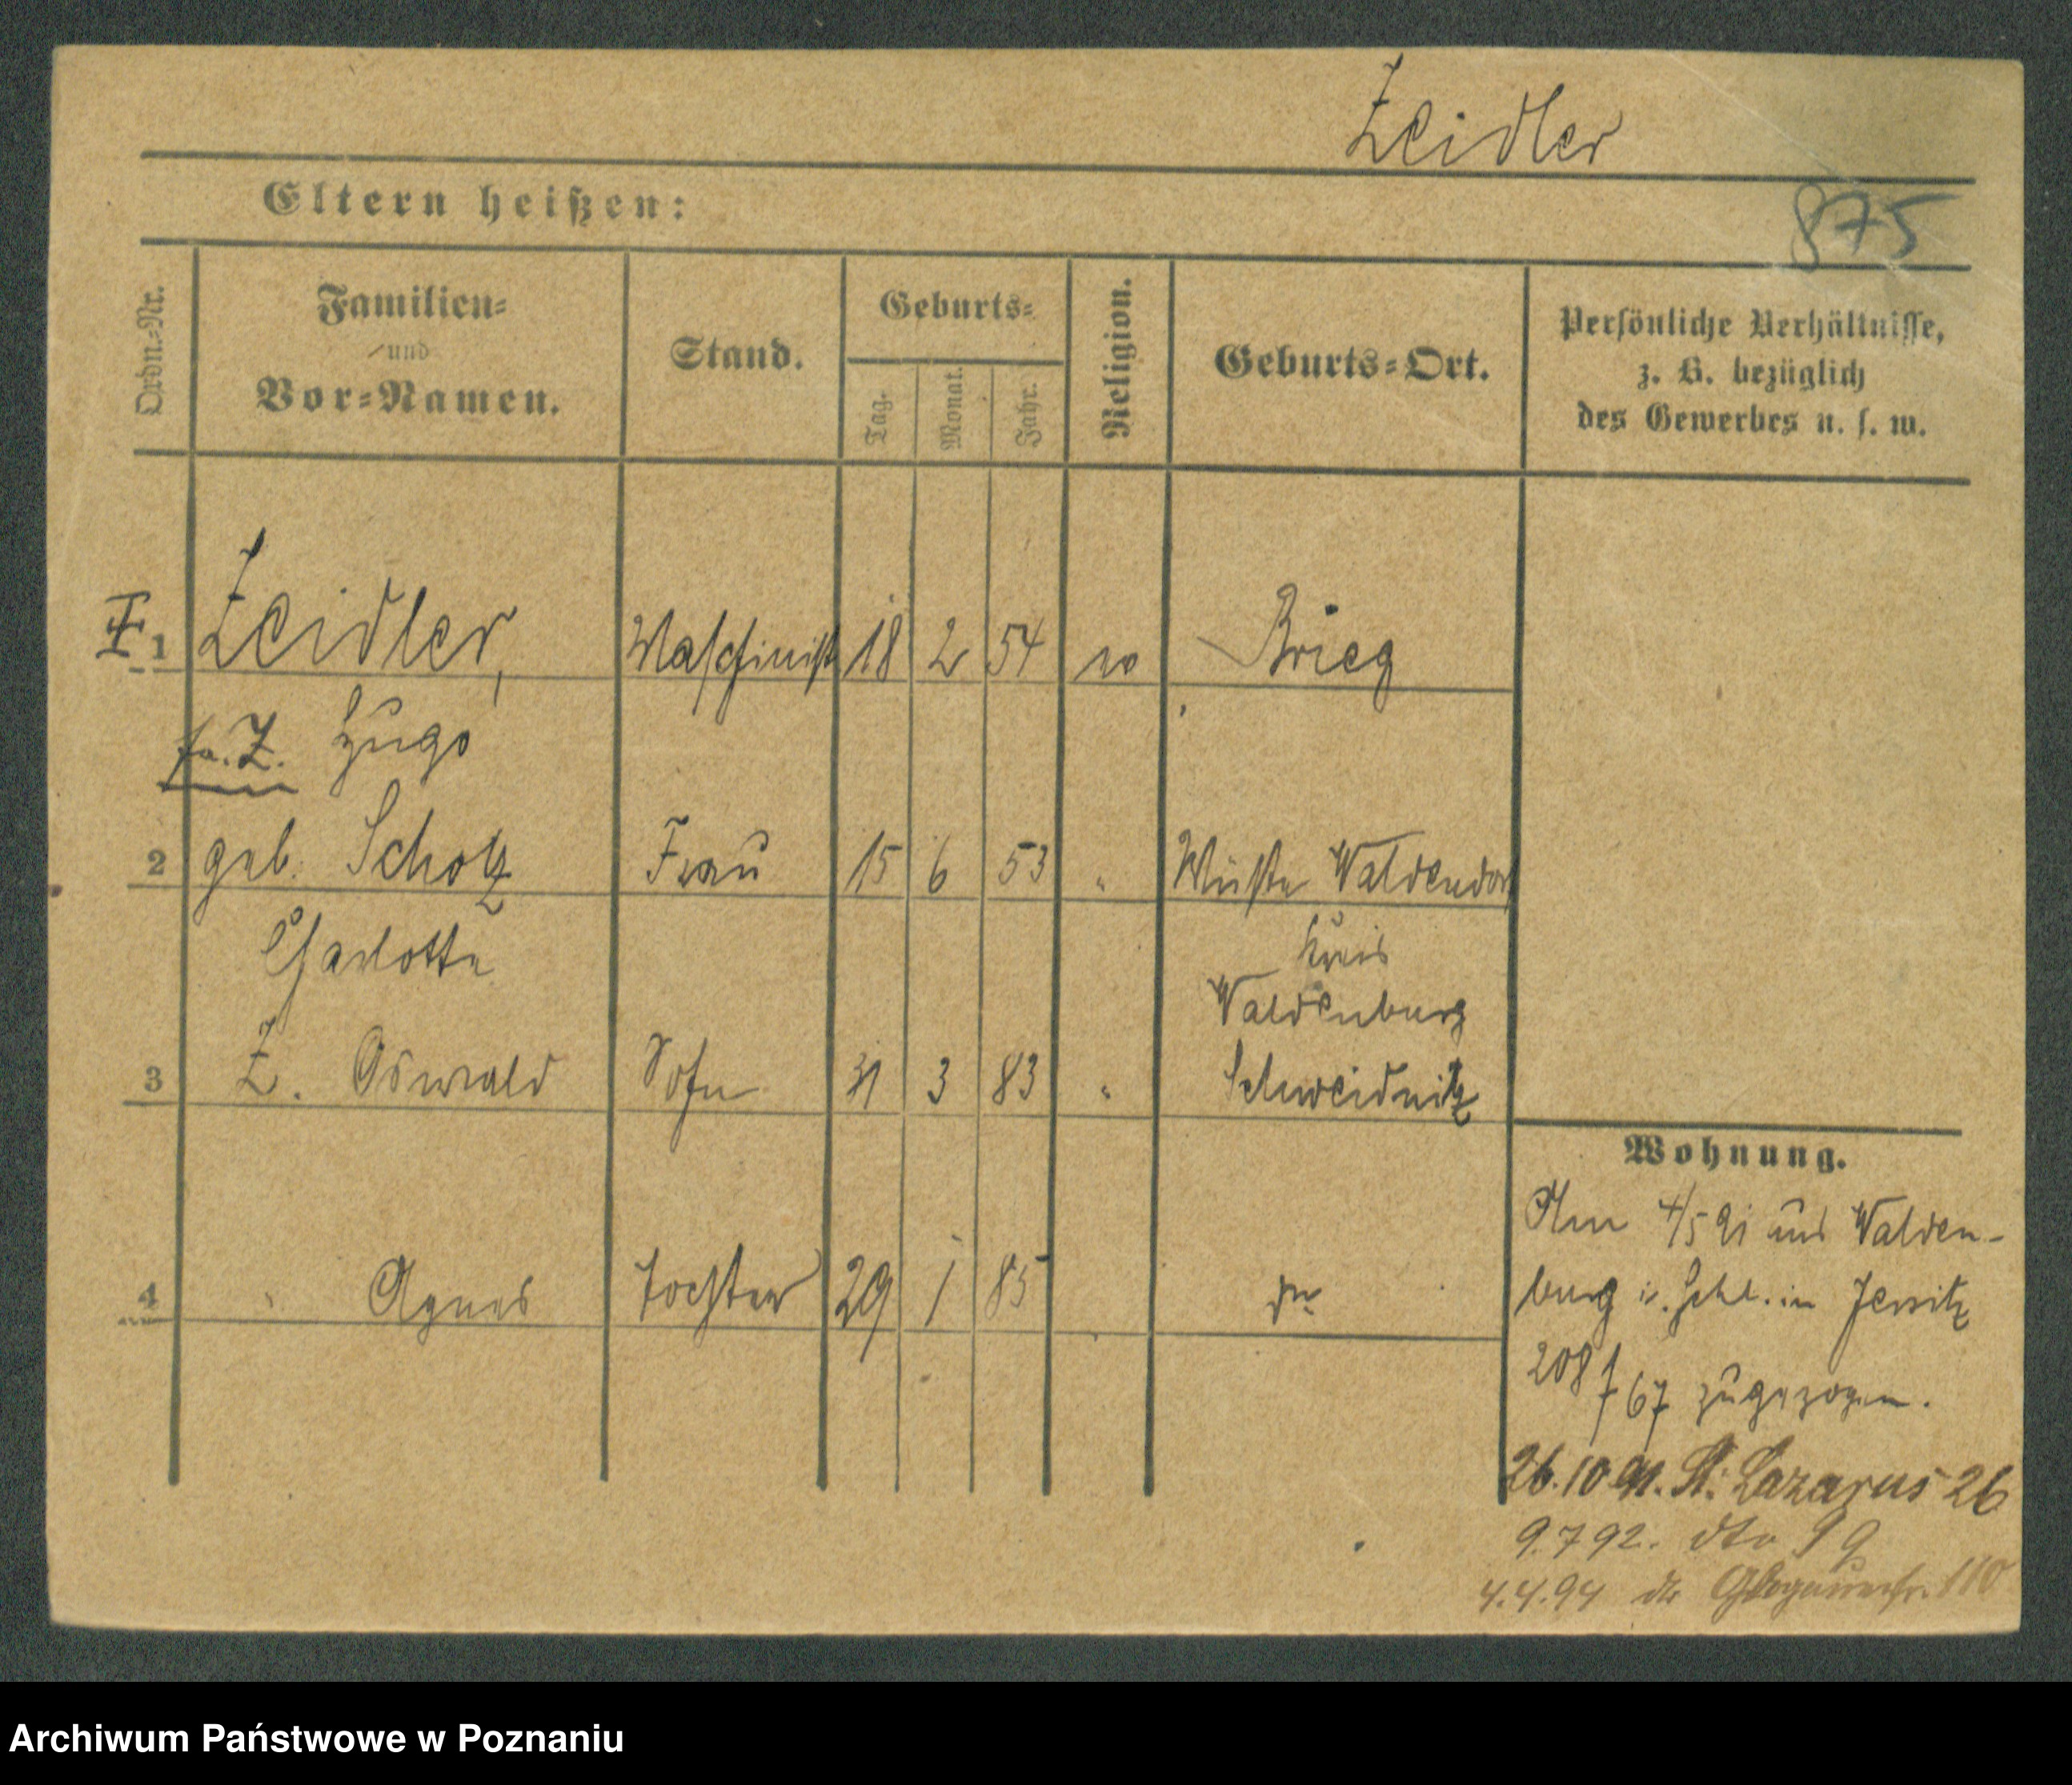 Zeidler
Eltern heißen:
875
Ordn.-Nr.
Familien-
und
Vor-Namen.
Stand.
Geburts-
Tag.
Monat.
Jahr.
Religion.
Geburts-Ort.
Persönliche Verhältnisse,
z. B. bezüglich
des Gewerbes u. s. w.
1 Zeidler, Maschinist 18 2 54 Brieg
Hugo
2 geb. Scholz Frau 15 6 53 " Wüste Waldendorf
Charlotte Kreis
Waldenburg
3 Z. Oswald Sohn 31 3 83 " Schweidnitz
4 " Agnes Tochter 29 1 85
Wohnung.
Am 4/5 91 aus Walden-
burg i. Schl. in Jersitz
208 f 67 zugezogen.
26.10.91. St. Lazarus 26
9.7 92. dto
4.4.94 dto Glogauerstr. 110
Archiwum Państwowe w Poznaniu